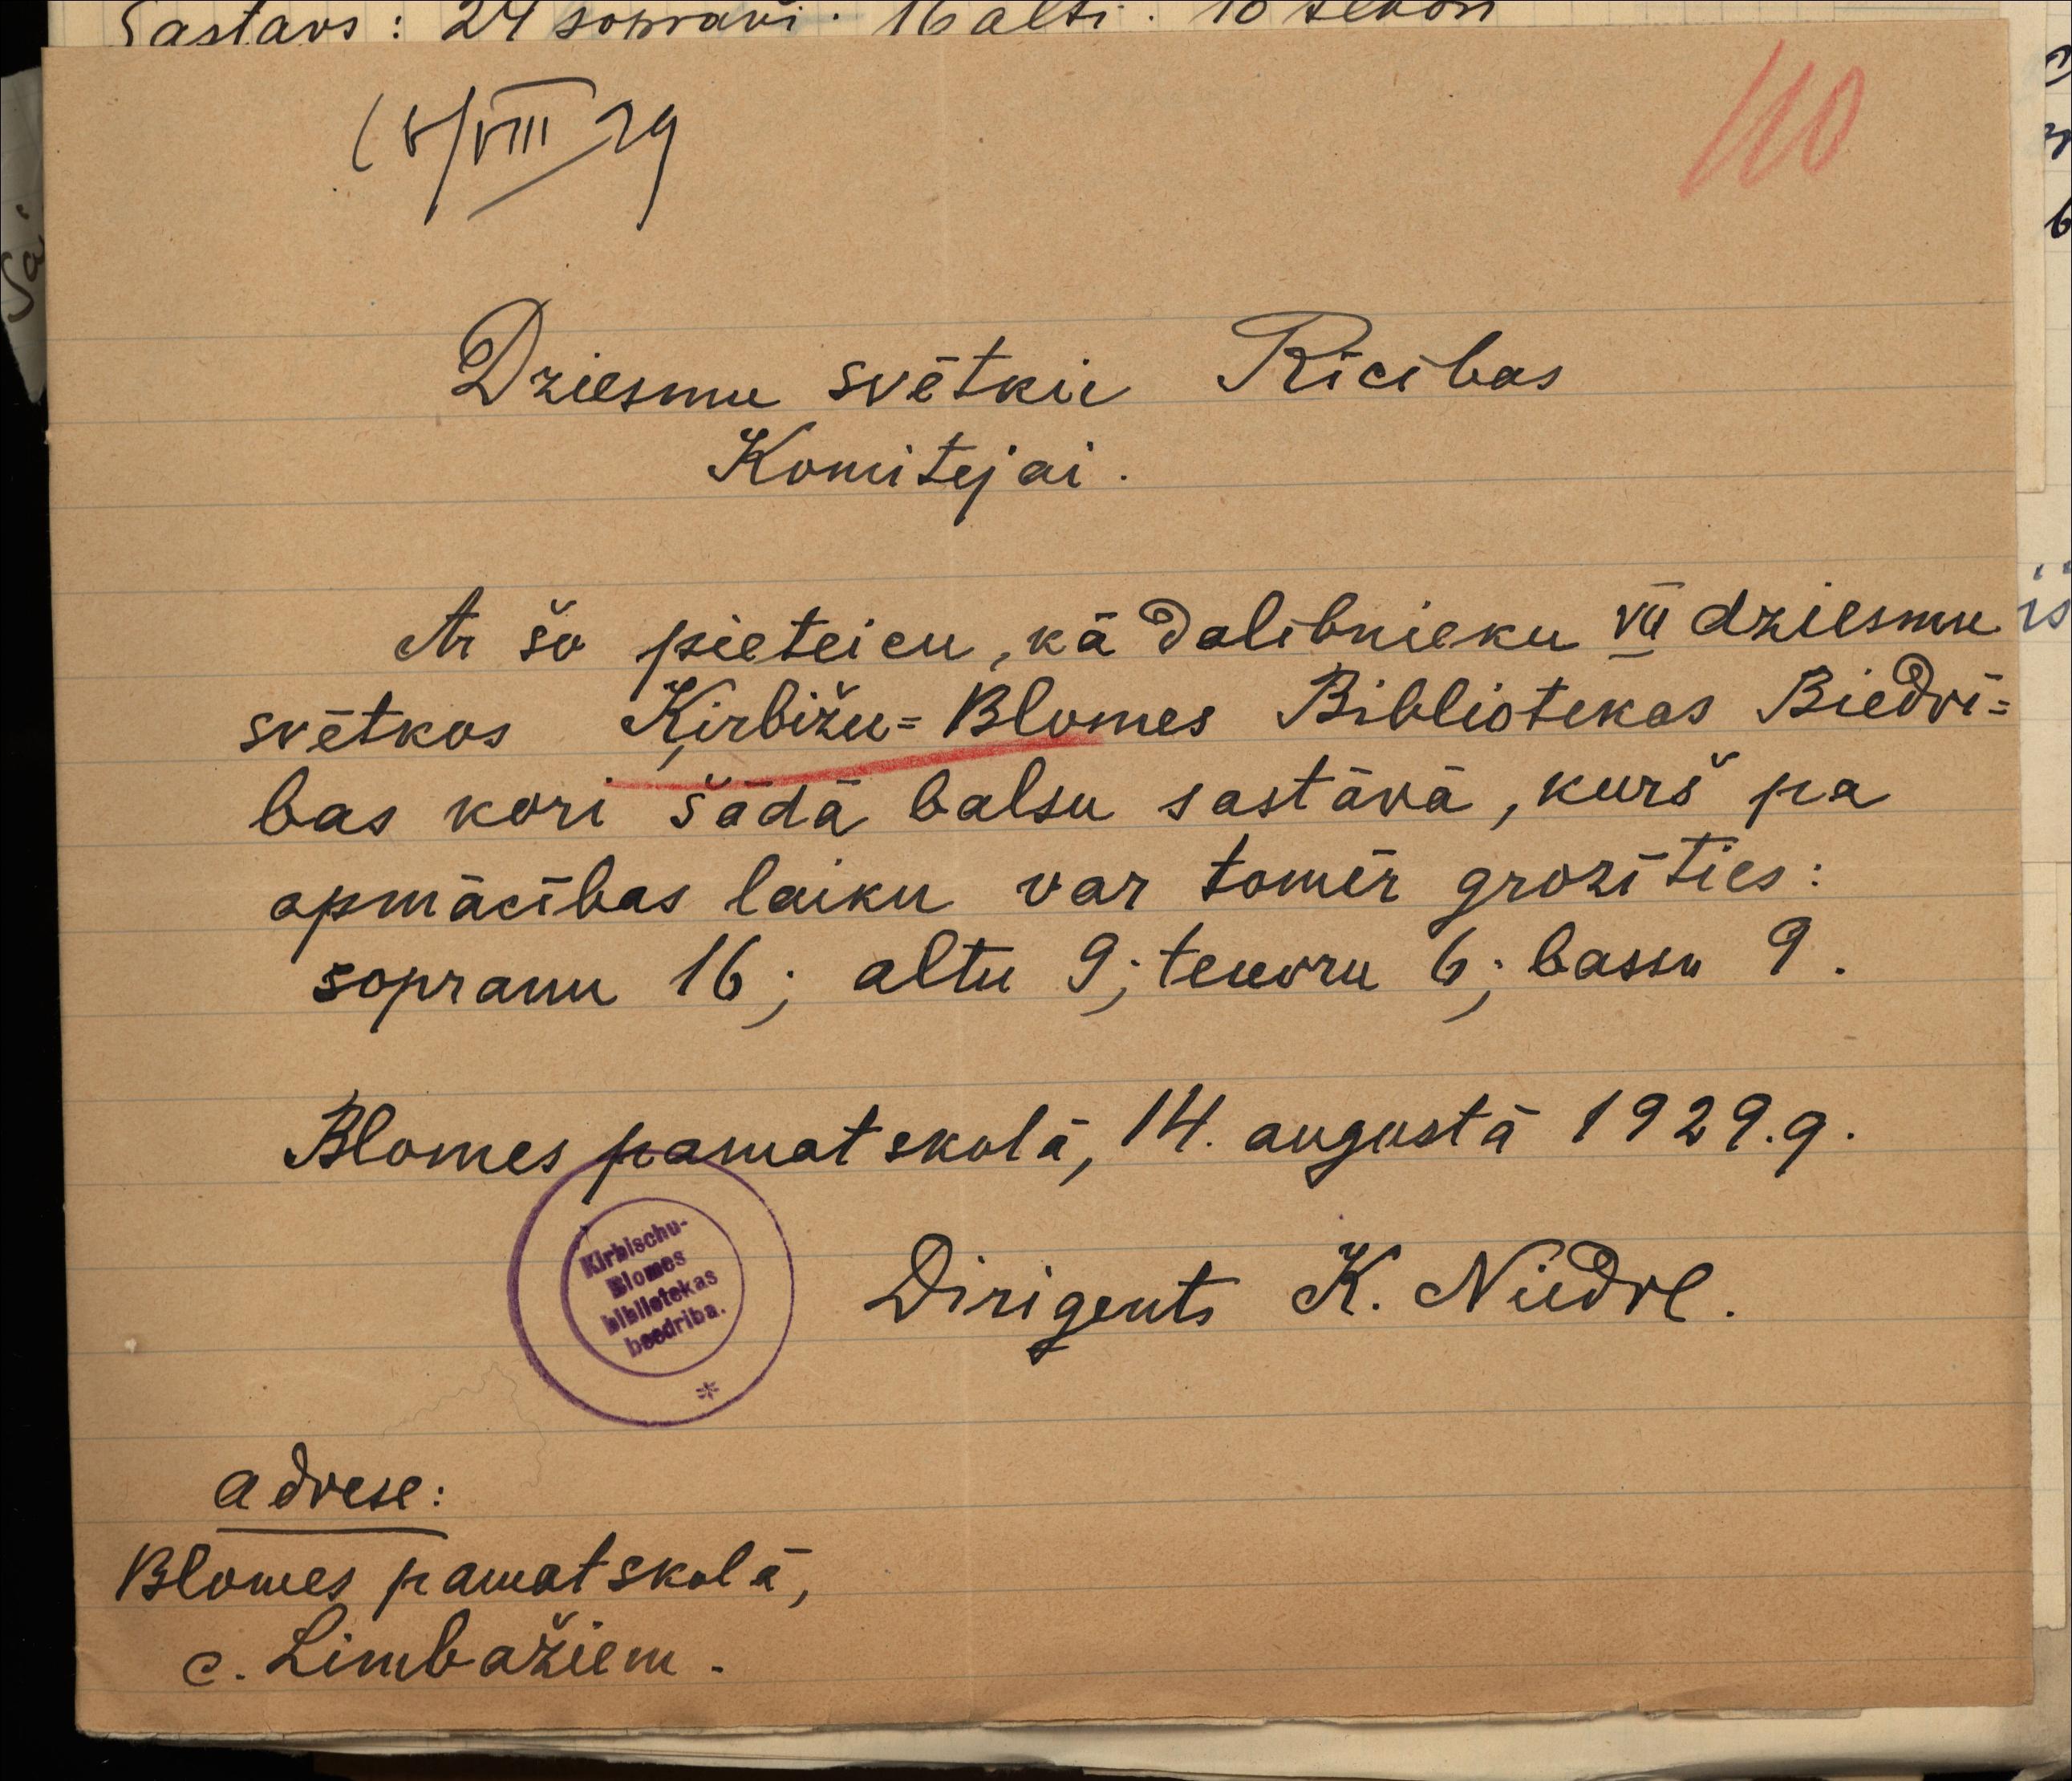 Sastavs: 24 soprani. 16 alti. 10 tenori
VIII 29
110
Dziesmu svētku Rīcības
Komitejai.
Ar šo pieteicu, kā dalībnieku VII dziesmu
svētkos Ķirbižu=Blomes Bibliotekas Biedrī=
bas kori šādā balsu sastāvā, kurš pa
apmācības laiku var tomēr grozīties:
sopranu 16; altu 9; tenoru 6; bassu 9.
Blomes pamatskolā, 14. augustā 1929.g.
Kirbischu-
Blomes
bibliotekas
beedriba.
Dirigents K. Niedre.
adrese:
Blomes pamatskolā,
c. Limbažiem.